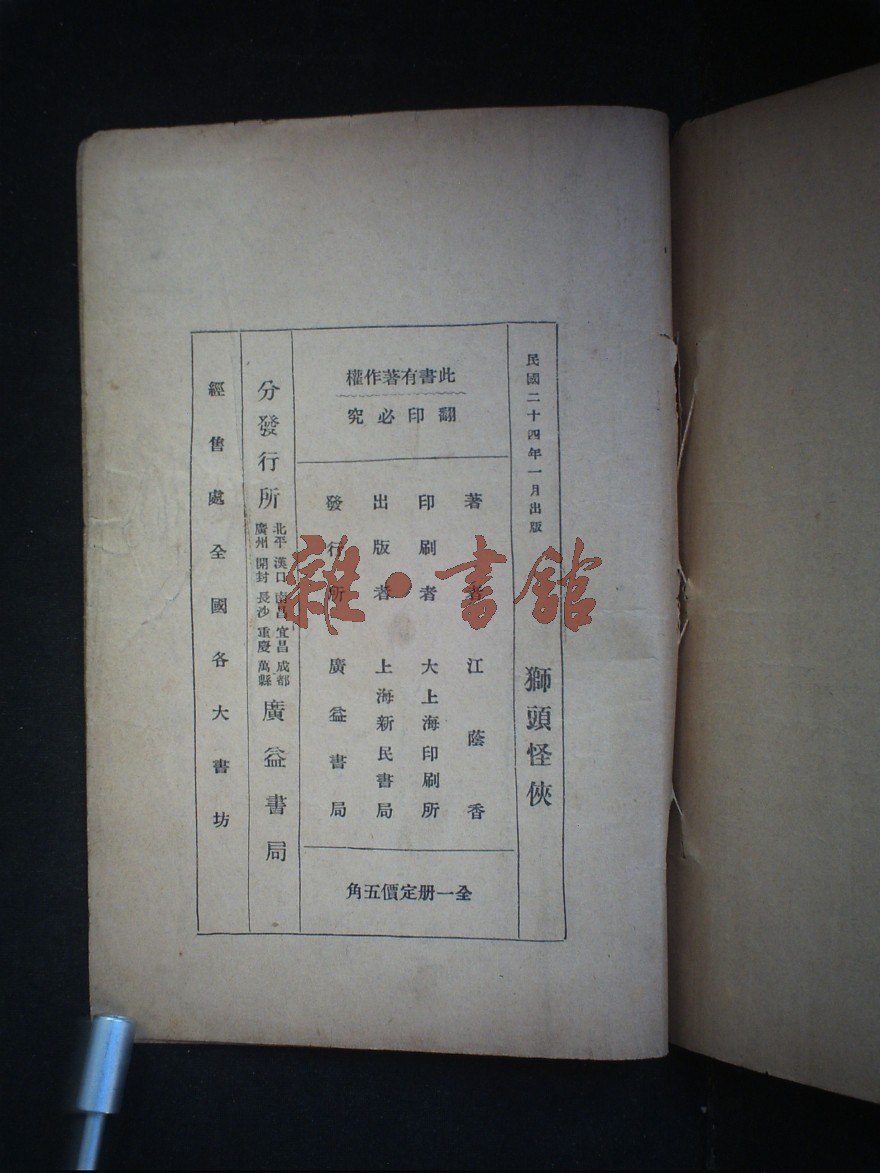 民國二十四年一月出版
獅頭怪俠
此書有著作權
翻印必究
著者 江蔭香
印刷者 大上海印刷所
出版者 上海新民書局
發行所 廣益書局
全一册定價五角
分發行所 北平 漢口 南昌 宜昌 成都 廣州 開封 長沙 重慶 萬縣 廣益書局
經售處全國各大書坊
雜·書館